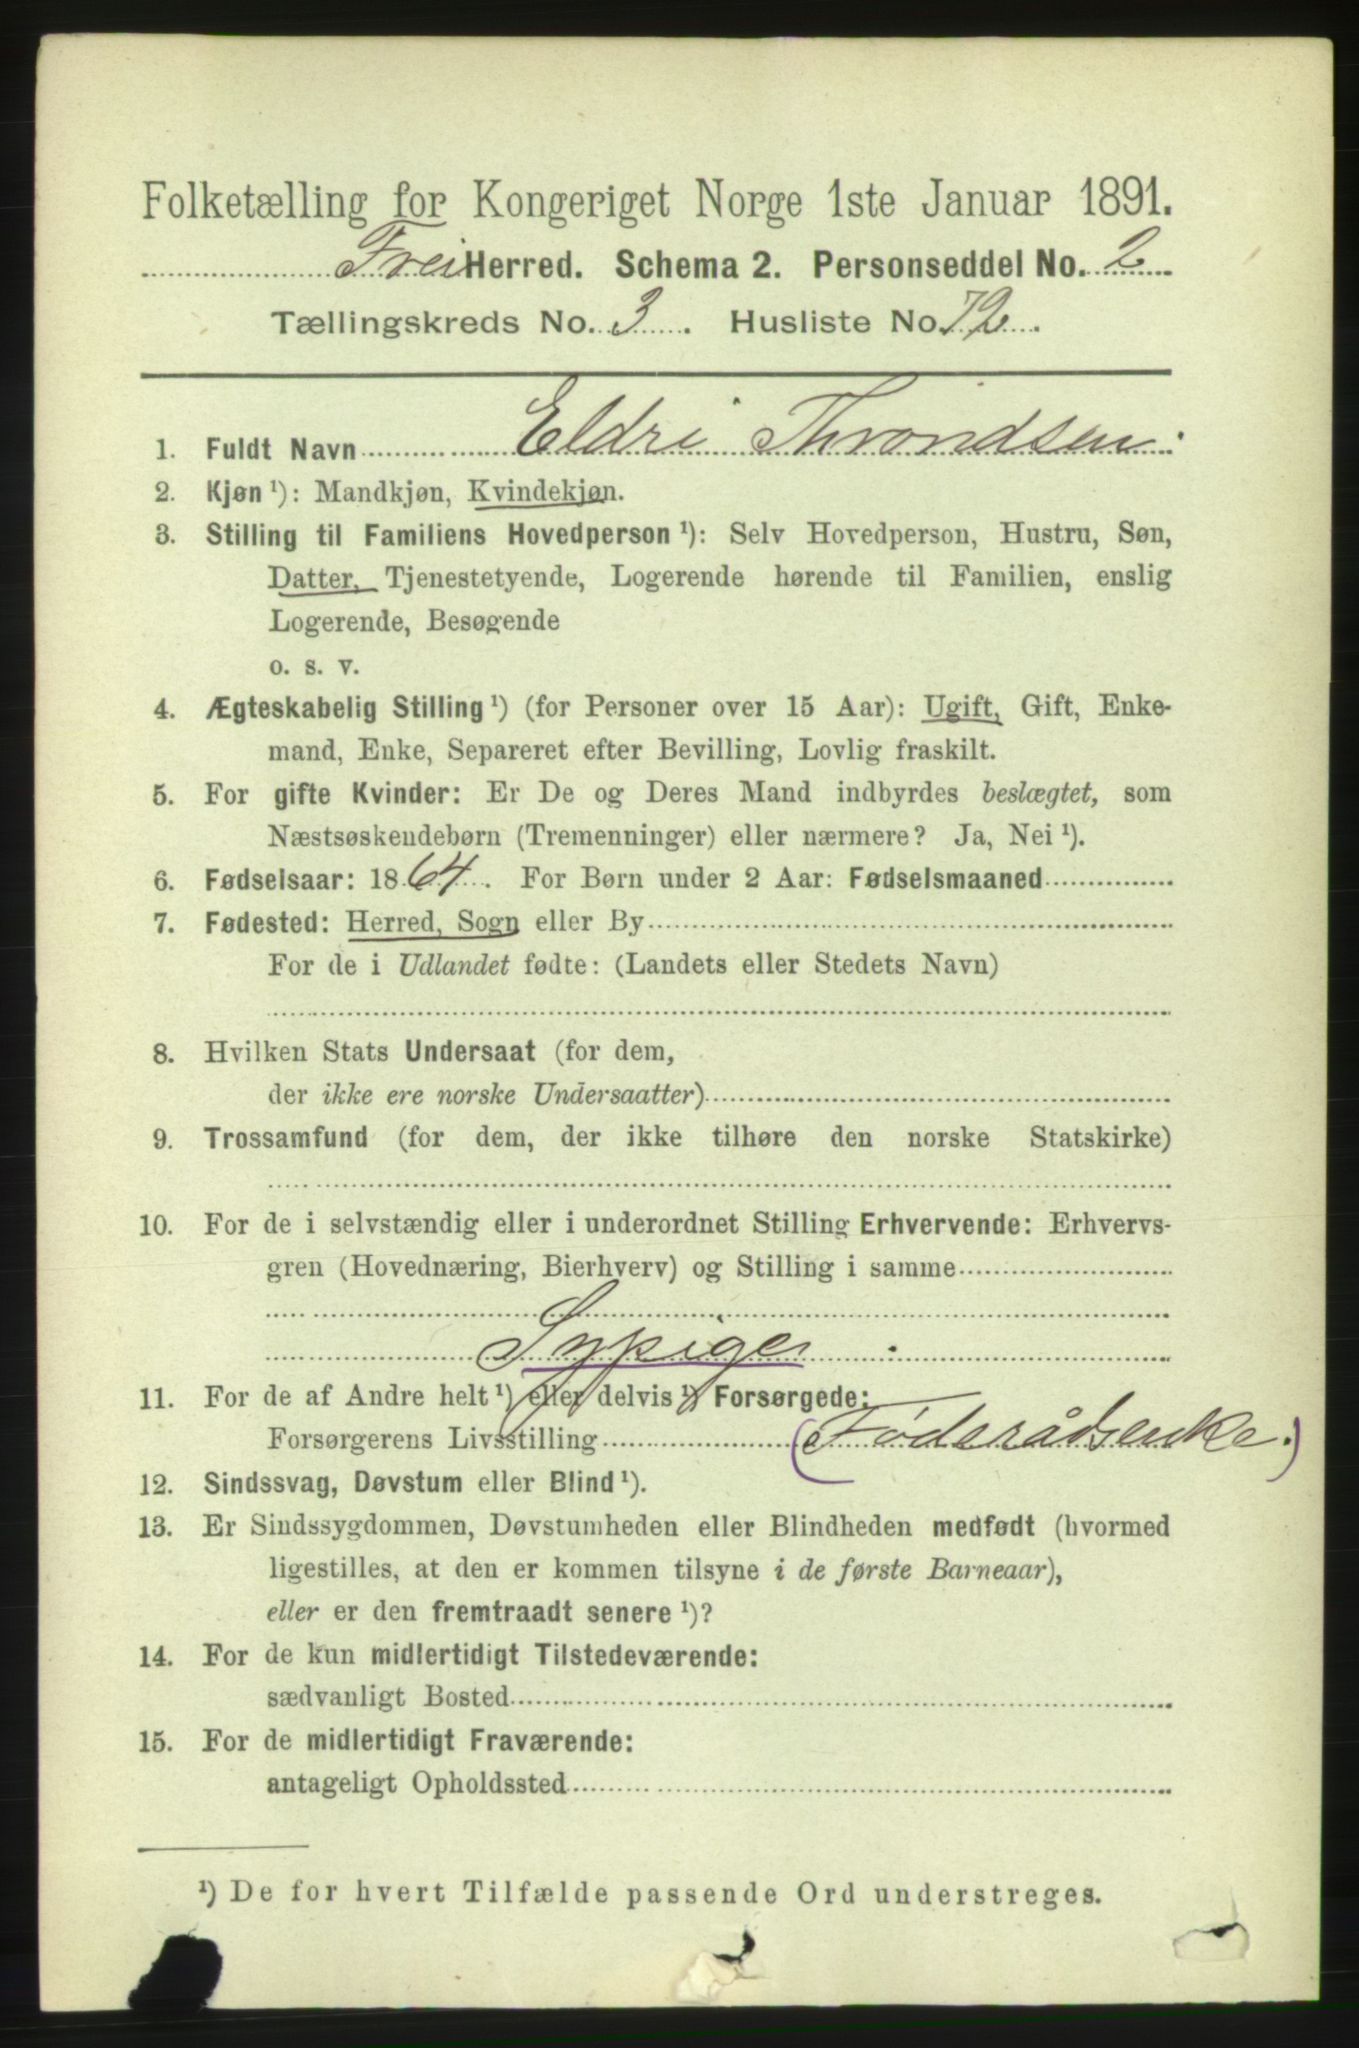 Folketælling for Kongeriget Norge 1ste Januar 1891.
Frei Herred. Schema 2. Personseddel No. 2
Tællingskreds No. 3. Husliste No. 72.
1. Fuldt Navn Eldri Throndsen.
2. Kjøn ¹): Mandkjøn, Kvindekjøn.
3. Stilling til Familiens Hovedperson ¹): Selv Hovedperson, Hustru, Søn,
Datter, Tjenestetyende, Logerende hørende til Familien, enslig
Logerende, Besøgende
o. s. v.
4. Ægteskabelig Stilling ¹) (for Personer over 15 Aar): Ugift, Gift, Enke-
mand, Enke, Separeret efter Bevilling, Lovlig fraskilt.
5. For gifte Kvinder: Er De og Deres Mand indbyrdes beslægtet, som
Næstsøskendebørn (Tremenninger) eller nærmere? Ja, Nei ¹).
6. Fødselsaar: 1864. For Børn under 2 Aar: Fødselsmaaned
7. Fødested: Herred, Sogn eller By
For de i Udlandet fødte: (Landets eller Stedets Navn)
8. Hvilken Stats Undersaat (for dem,
der ikke ere norske Undersaatter)
9. Trossamfund (for dem, der ikke tilhøre den norske Statskirke)
10. For de i selvstændig eller i underordnet Stilling Erhvervende: Erhvervs-
gren (Hovednæring, Bierhverv) og Stilling i samme
Sypige.
11. For de af Andre helt ¹) eller delvis ¹) Forsørgede:
Forsørgerens Livsstilling (Føderådsenke.)
12. Sindssvag, Døvstum eller Blind ¹).
13. Er Sindssygdommen, Døvstumheden eller Blindheden medfødt (hvormed
ligestilles, at den er kommen tilsyne i de første Barneaar),
eller er den fremtraadt senere ¹)?
14. For de kun midlertidigt Tilstedeværende:
sædvanligt Bosted
15. For de midlertidigt Fraværende:
antageligt Opholdssted
¹) De for hvert Tilfælde passende Ord understreges.